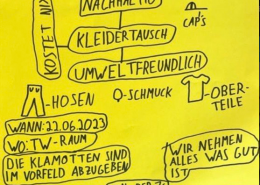 NACHHALTIG
KOSTET NIX
CAP'S
KLEIDERTAUSCH
UMWELTFREUNDLICH
-HOSEN
-SCHMUCK
-OBER-
TEILE
WANN: 22.06.2023
WO: TW-RAUM
DIE KLAMOTTEN SIND
IM VORFELD ABZUGEBEN
WIR NEHMEN
ALLES WAS GUT
IST